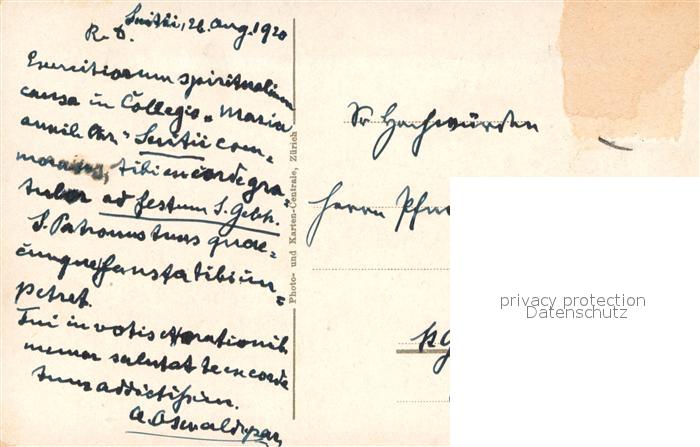 Suitii, 26. Aug. 1920
R. D.
Exercitiorum spiritualium
causa in Collegio „Maria
auxiliatr" Suitii com-
morans, tibi ex corde gra-
tulor ad festum S. Gebh.
S. Patronus tuus quae-
cumque fausta tibi im-
petret.
Tui in votis et orationib.
memor salutat te ex corde
tuus addictissim.
A. Oswald, par.
Photo- und Karten-Centrale, Zürich
Sr Hochwürden
Herrn
privacy protection
Datenschutz